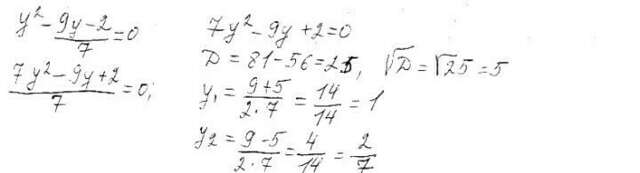 y² - (9y-2)/7 = 0
(7y² - 9y + 2)/7 = 0;
7y² - 9y + 2 = 0
D = 81 - 56 = 25, √D = √25 = 5
y₁ = (9+5)/(2·7) = 14/14 = 1
y₂ = (9-5)/(2·7) = 4/14 = 2/7